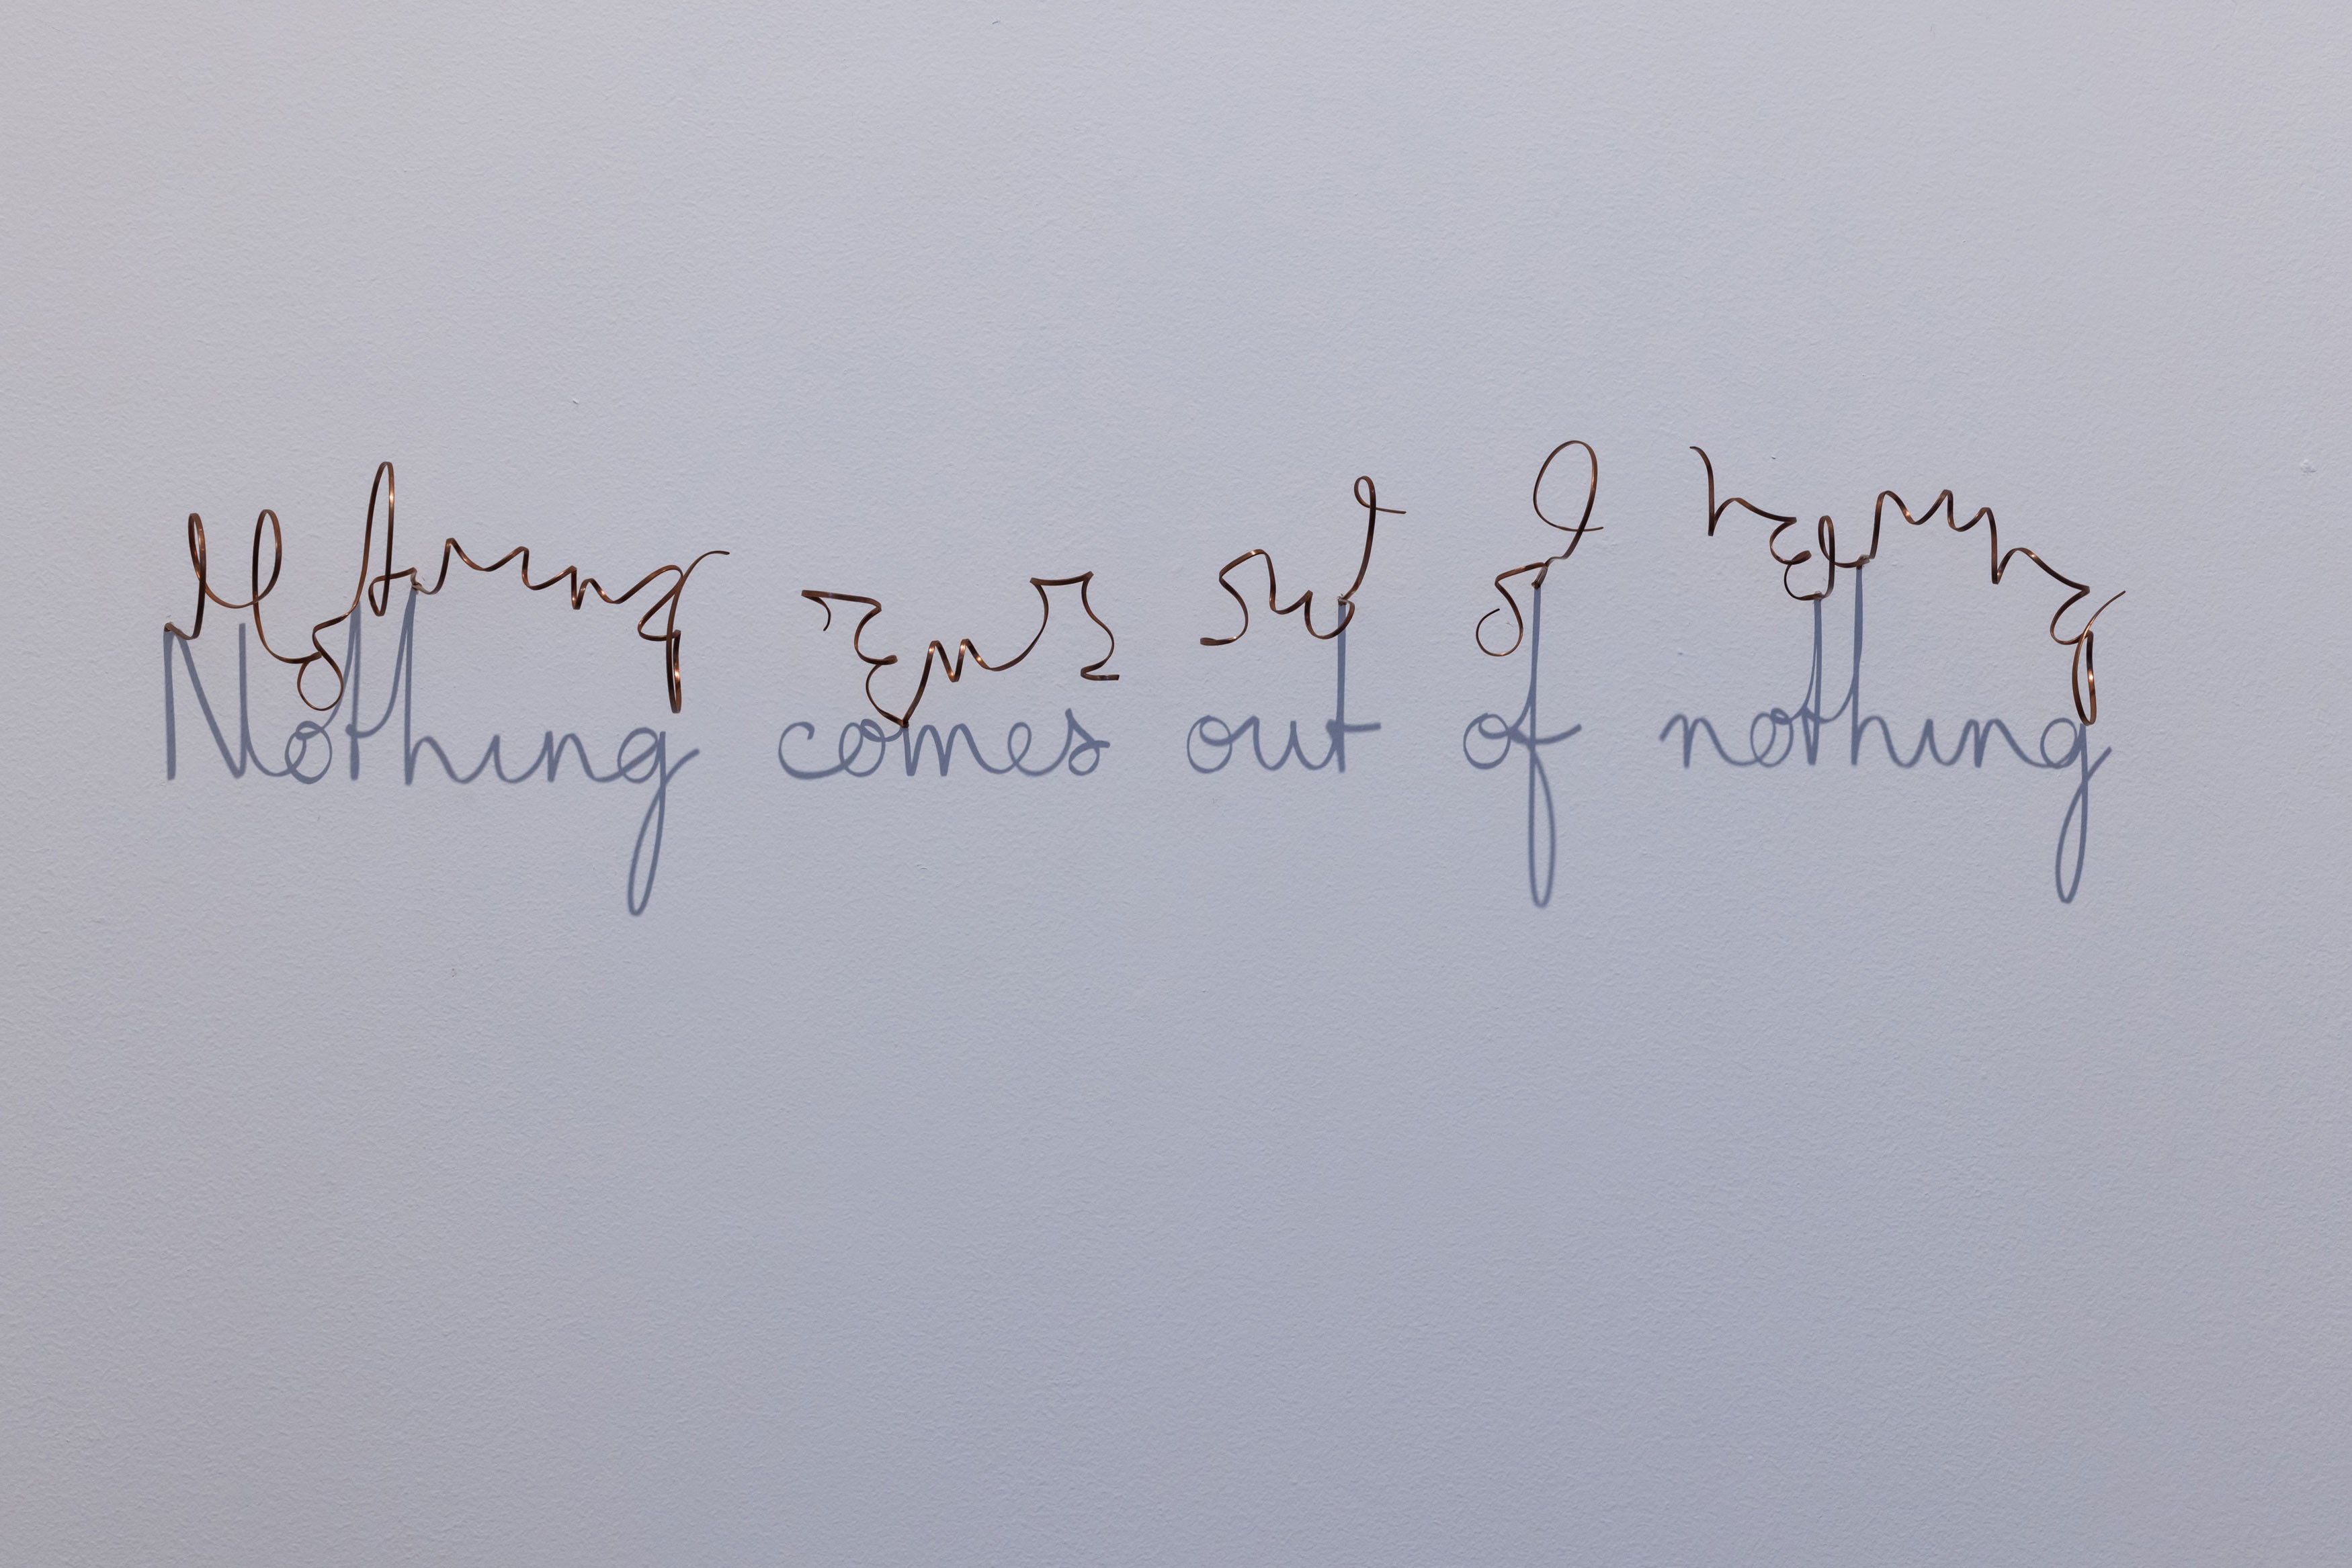 Nothing comes out of nothing